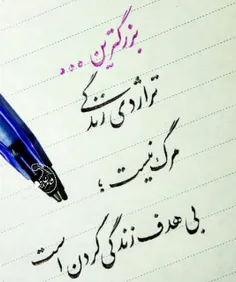 بزرگترین ...
تراژدی زندگی
مرگ نیست ؛
بی هدف زندگی کردن است